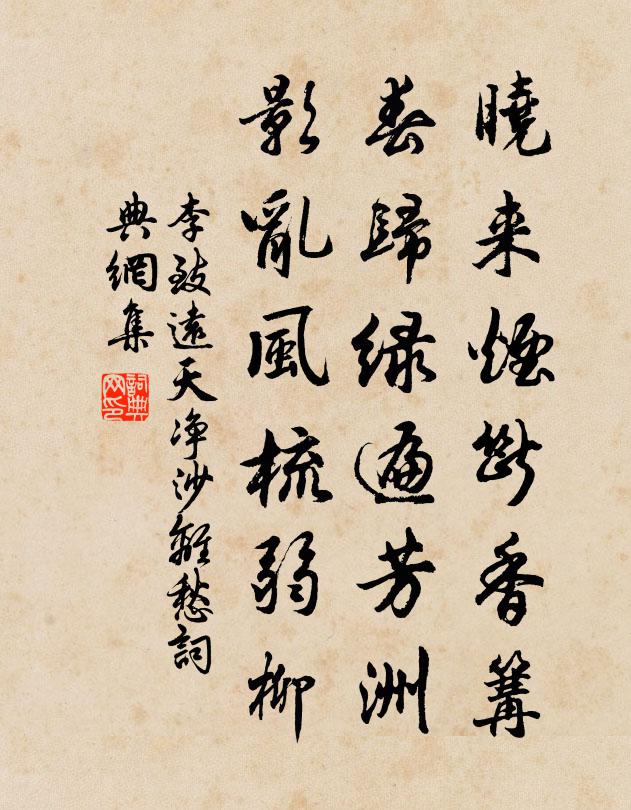 曉来煙斷香篝
春歸緑遍芳洲
影亂風梳弱柳
李致遠天净沙離愁詞
典網集
詞典网印